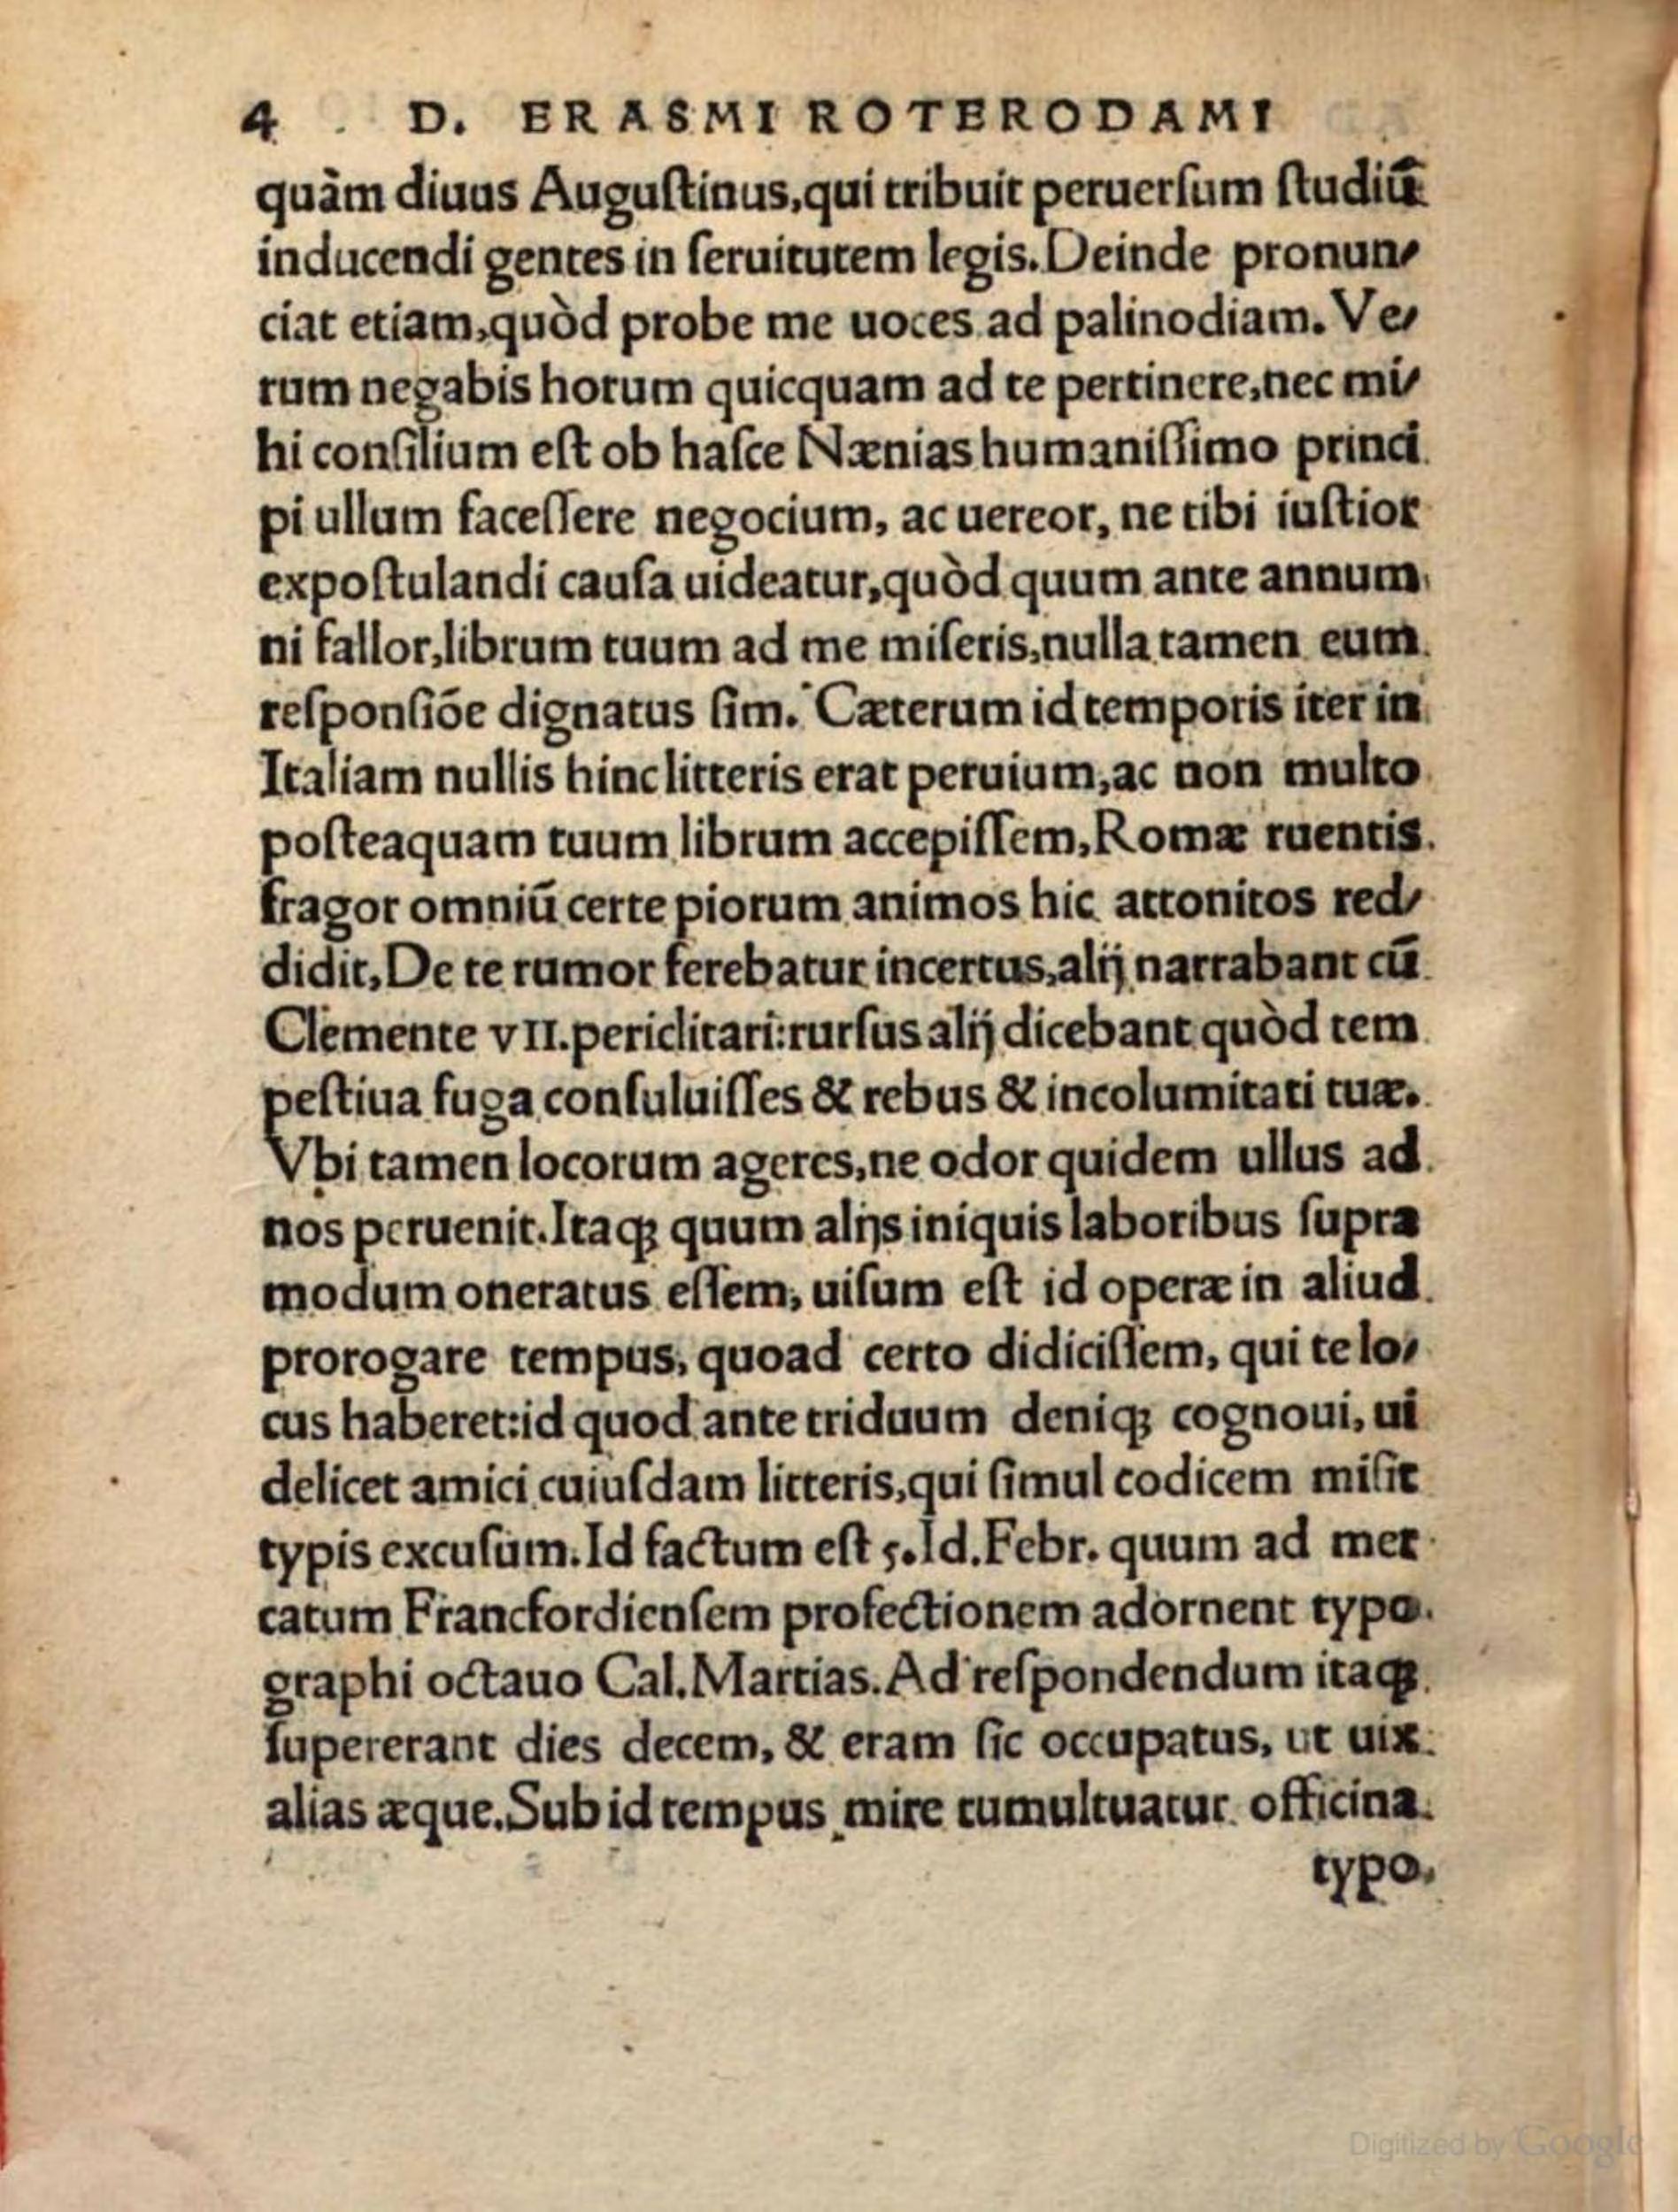 4 D. ERASMI ROTERODAMI
quàm diuus Auguſtinus,qui tribuit peruerſum ſtudiū
inducendi gentes in ſeruitutem legis.Deinde pronun⸗
ciat etiam,quòd probe me uoces ad palinodiam. Ve⸗
rum negabis horum quicquam ad te pertinere,nec mi⸗
hi conſilium eſt ob haſce Nænias humaniſſimo princi
pi ullum faceſſere negocium, ac uereor, ne tibi iuſtior
expoſtulandi cauſa uideatur,quòd quum ante annum
ni fallor,librum tuum ad me miſeris,nulla tamen eum
reſponſiōe dignatus ſim. Cæterum id temporis iter in
Italiam nullis hinc litteris erat peruium,ac non multo
poſteaquam tuum librum accepiſſem,Romæ ruentis
fragor omniū certe piorum animos hic attonitos red⸗
didit,De te rumor ferebatur incertus,alij narrabant cū
Clemente VII.periclitari:rurſus alij dicebant quòd tem
peſtiua fuga conſuluiſſes & rebus & incolumitati tuæ.
Vbi tamen locorum ageres,ne odor quidem ullus ad
nos peruenit.Itaq; quum alijs iniquis laboribus ſupra
modum oneratus eſſem, uiſum eſt id operæ in aliud
prorogare tempus, quoad certo didiciſſem, qui te lo⸗
cus haberet:id quod ante triduum deniq; cognoui, ui
delicet amici cuiuſdam litteris,qui ſimul codicem miſit
typis excuſum.Id factum eſt 5.Id.Febr. quum ad mer
catum Francfordienſem profectionem adornent typo
graphi octauo Cal.Martias.Ad reſpondendum itaq;
ſupererant dies decem, & eram ſic occupatus, ut uix
alias æque.Sub id tempus mire tumultuatur officina
typo⸗
Digitized by Google